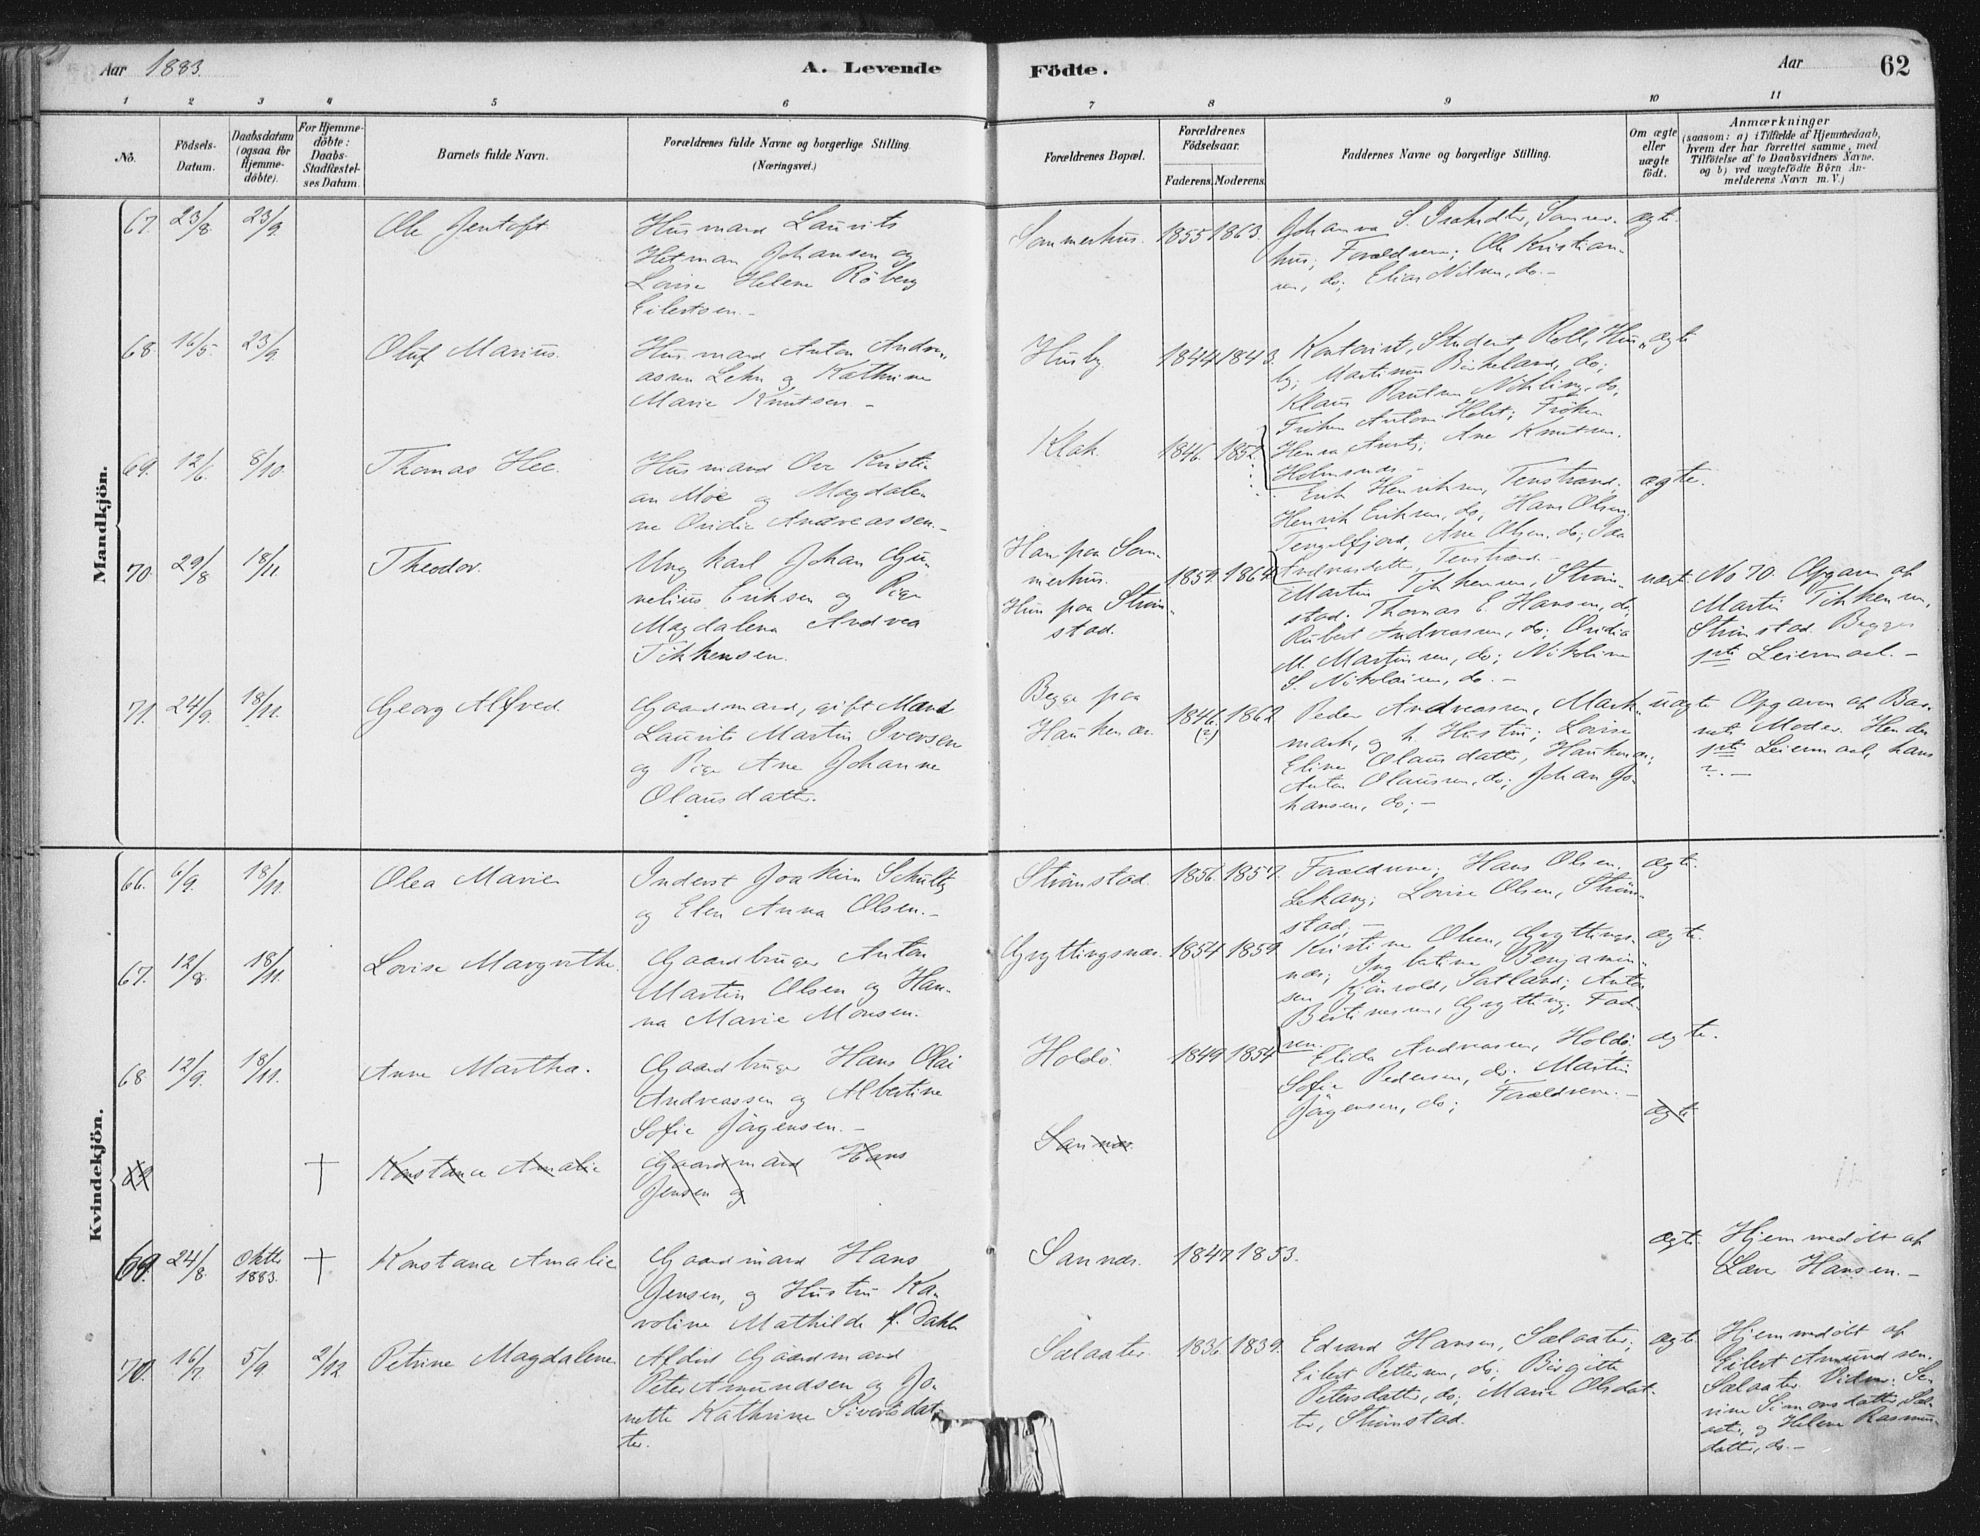 Aar 1883.
A. Levende
Födte.
Aar
62
1 2 3 4 5 6 7 8 9 10 11
Nö.
Födsels-
Datum.
Daabsdatum
(ogsaa for
Hjemme-
döbte).
For Hjemme-
döbte:
Daabs-
Stadfæstel-
ses Datum.
Barnets fulde Navn.
Forældrenes fulde Navne og borgerlige Stilling.
(Næringsvei.)
Forældrenes Bopæl.
Forældrenes
Födselsaar.
Faderens. Moderens.
Faddernes Navne og borgerlige Stilling.
Om ægte
eller
uægte
födt.
Anmærkninger
(saasom: a) i Tilfælde af Hjemmedaab,
hvem der har forrettet samme, med
Tilföielse af to Daabsvidners Navne,
og b) ved uægtefödte Börn An-
melderens Navn m.V.)
Mandkjön.
67. 23/8 23/9. Ole Jentoft
Husmand Laurits
Hetman Johansen og
Lovise Helene Röberg
Eilertsen.-
Sommerhus. 1855 1863.
Johanna S. Isaksdtr, Sommer-
hus; Forældrene; Ole Kristian-
sen, do; Elias Nilsen, do.-
ægte.
68. 16/5. 23/9. Oluf Marius.
Husmand Anton Andre-
asen Lehn og Kathrine
Marie Knutsen.-
Husby 1844 1843.
Kontorist, Student Roll, Hus-
by; Martinus Birkeland, do;
Klaus Paulsen Nikling, do;
Fröken Antona Holst; Fröken
Henna Aunts; Ane Knutsen.
Holmsnes.-
ægte
69. 12/6. 8/10. Thomas Hee.
Husmand Ove Kristi-
an Moe og Magdale-
ne Ovidie Andreassen.-
Klak 1846. 1852.
Erik Henriksen, Tenstrand;
Henrik Eriksen, do; Hans Olsen,
Tengelfjord, Ane Olsen, do; Ida
Andreasdatter, Tenstrand.-
ægte.
70. 29/8 18/11 Theodor.
Ung karl Johan Gju-
nelius Eriksen og Pige
Magdalena Andrea
Tikkensen.
Han paa Som-
merhus.
Hun paa Ström-
stad.
1859. 1864.
Martin Tikkensen, Ström-
stad; Thomas E. Hansen, do;
Rubert Andreassen, do; Ovidia
M. Martinsen, do; Nikoline
S. Nikolaisen, do.-
uægte. No 70. Opgaven af
Martin Tikkensen,
Strömstad. Begges
1ste Leiermaal.-
71. 24/9. 18/11. Georg Alfred.
Gaardmand, gift Mand
Laurits Martin Iversen
og Pige Ane Johanne
Olausdatter.
Begge paa
Haukenæs.
1846. (?) 1862
Peder Andreassen, Mark-
mark, og h. Hustru; Lovise
Eline Olausdatter, Haukenæs;
Anton Olaussen, do; Johan Jo-
hansen, do;-
uægte Opgaven af Bar-
nets Moder. Hendes
1ste Leiermaal, hans
?.-
Kvindekjön.
66. 6/9. 18/11. Olea Marie
Inderst Joakim Schultz
og Elen Anna Olsen.-
Strömstad. 1856. 1857.
Forældrene; Hans Olsen,
Lekang; Lovise Olsen, Ström-
stad;-
ægte.
67. 12/8. 18/11. Lovise Margrethe.
Gaardbruger Anton
Martin Olsen og Han-
na Marie Monsen.
Gryttingsnæs. 1854 1859
Kristine Olsen, Gryttings-
næs; Ingbertine Benjamin-
sen, Kjönvold, Satland; Anton
Bertinesen, Grytting; Fad-
ren.
ægte.
68. 12/9. 18/11. Anne Martha.
Gaardbruger Hans Olai
Andreassen og Albertine
Sofie Jörgensen.-
Holdö. 1849 1854
Elida Andreassen, Holdö;
Sofie Pedersen, do; Martin
Jörgensen, do; Forældrene.-
ægte.
69 † Konstance Amalie
Gaardmand Hans
Jensen og
Sannæs.
ægte
69. 24/8. Oktbr 1883. † Konstance Amalie
Gaardmand Hans
Jensen, og Hustru Ka-
roline Mathilde f. Dahl
Sannæs. 1847. 1853.
ægte. Hjemmedöbt af
Lærer Hansen.-
70. 16/7. 5/9. 2/12 Petrine Magdalene
Afdöd Gaardmand
Peter Amundsen og Jo-
nette Kathrine Sivertsdat-
ter.
Salaater. 1836. 1839.
Edvard Hansen, Salaater;
Eilert Pettersen, do; Birgitte
Petersdatter, do; Marie Olsdat-
ter, Strömstad.
ægte Hjemmedöbt af
Eilert Amundsen.
Salaater. Vidner: Se-
rine Simonsdatter, Sal-
aater, og Helene Rasmus-
datter, do.-